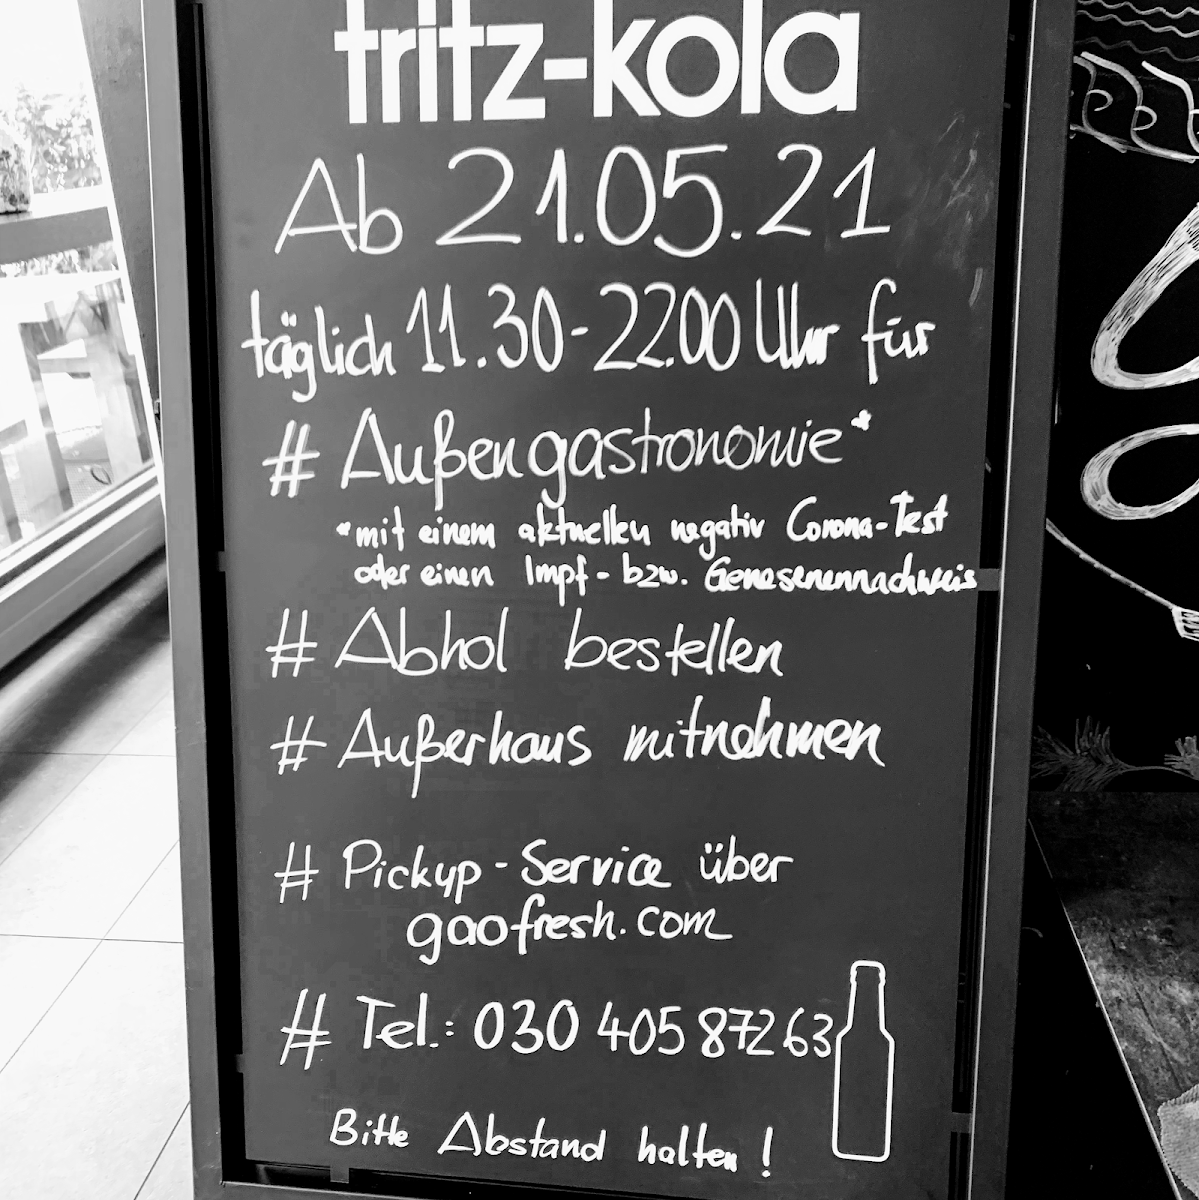 fritz-kola
Ab 21.05.21
täglich 11.30-22.00 Uhr für
# Außengastronomie*
*mit einem aktuellen negativ Corona-Test
oder einen Impf- bzw. Genesenennachweis
# Abhol bestellen
# Außerhaus mitnehmen
# Pickup-Service über
gaofresh.com
# Tel.: 030 405 872 63
Bitte Abstand halten!